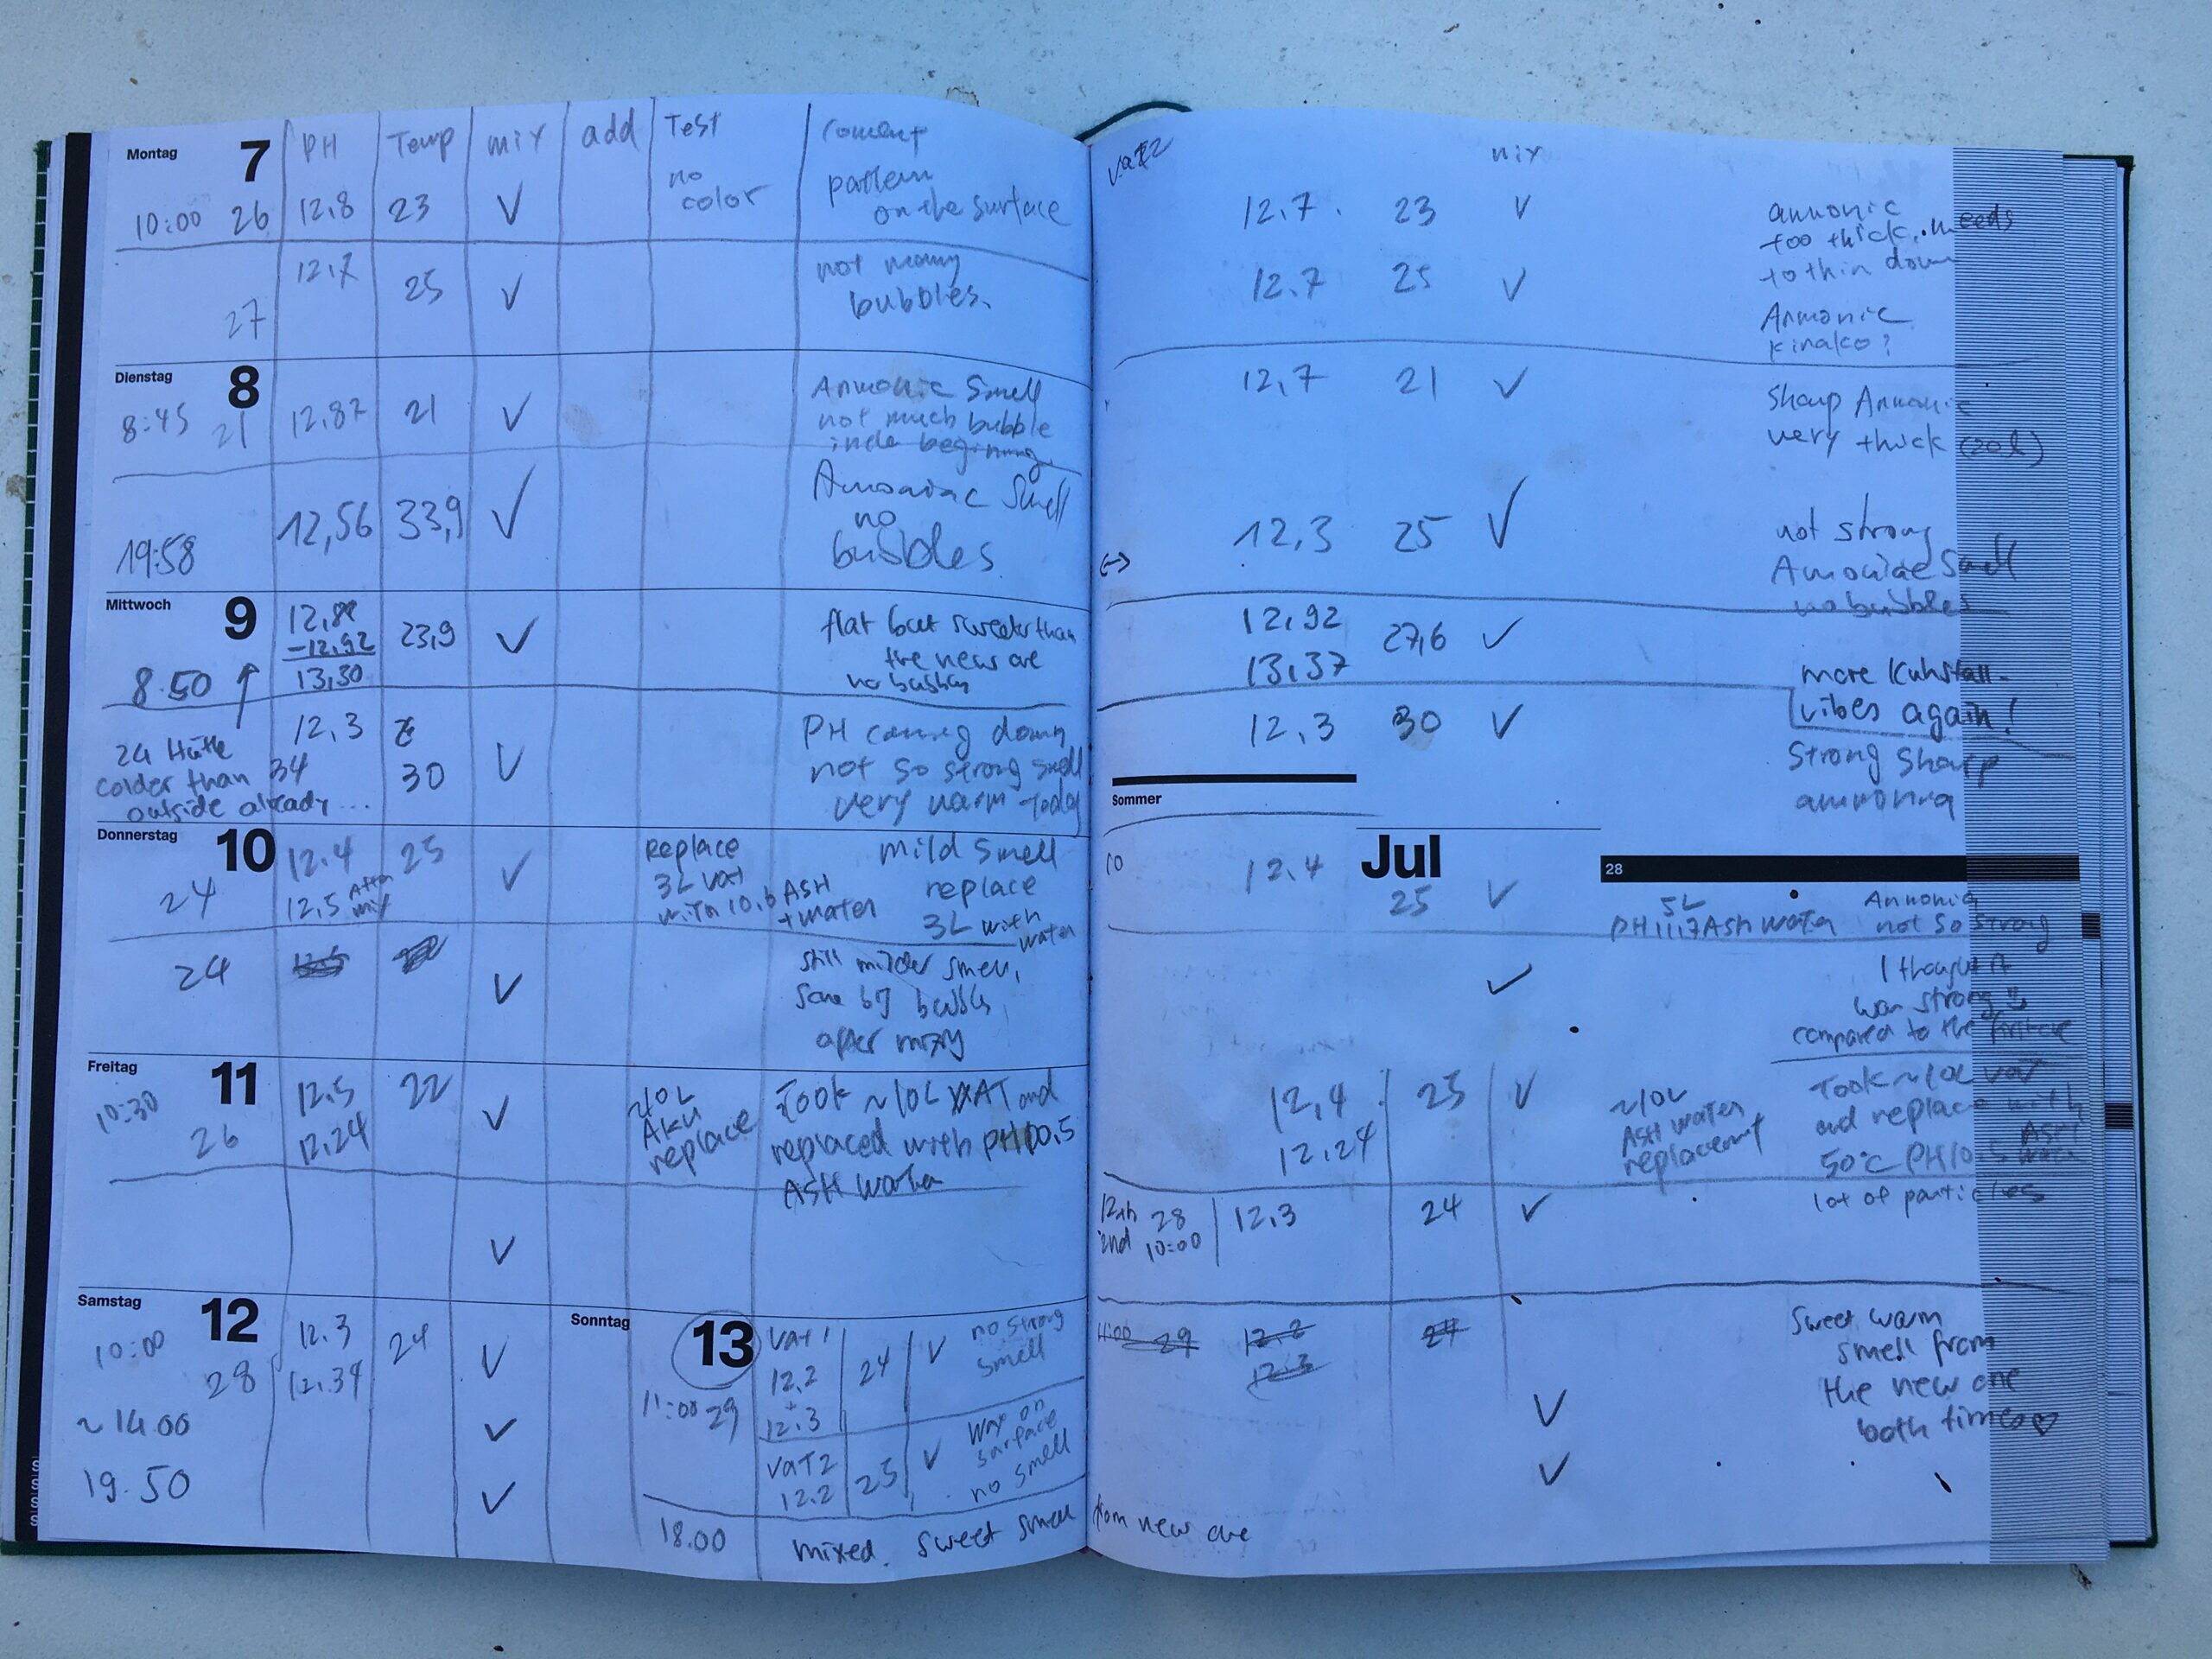 Montag 7 PH Temp mix add Test coment
10:00 26 12,8 23 ✓ no color pattern
on the surface
27 12,7 25 ✓ not many
bubbles.
Dienstag 8
8:45 21 12,87 21 ✓ Ammonic Smell
not much bubble
beginning
19:58 12,56 33,9 ✓ Smell
no
bubbles
Mittwoch 9
8.50 12,92 23,9 ✓ flat but sweeter than
13,30 the new one
no
12,3 30 ✓ PH coming down
24 Hütte 34 not so strong smell
colder than very warm today
outside already...
Donnerstag 10
24 12.4 25 ✓ Replace mild smell
12,5 After mix 3L vat replace
with 10,6 ASH 3L with
+ water water
24 ✓ still milder smell,
some big bubbles
after mixing
Freitag 11
10:30 12,5 22 ✓ ~10L Took ~10L VAT and
26 12,24 replace replaced with PH10,5
ASH water
✓
Samstag 12
10:00 28 12.3 24 ✓
12.34
~14.00 ✓
19.50 ✓
Sonntag 13
11:00 29 Vat 1 24 ✓ no strong
12,2 smell
+
12,3
Vat 2 25 ✓ on
12.2 surface
no smell
18.00 mixed. Sweet smell from new one
vat2 mix
12,7 23 ✓ ammonic
too thick, needs
to thin down
12,7 25 ✓ Ammonic
kinako?
12,7 21 ✓ Sharp Ammonic
very thick (20l)
↔ 12,3 25 ✓ not strong
Smell
no bubbles
12,92 27,6 ✓
13,37 more Kuhstall-
vibes again!
12,3 30 ✓ Strong Sharp
ammonia
Sommer
Jul
28
10 12.4 25 ✓ 5L Ammonia
PH11,7 Ash water not so strong
✓ I thought it
was strong
compared to the first one
12,4 25 ✓ ~10L Took ~10L vat
12,24 ASH water and replace with
replacement 50°C PH10.5 ASH water
12th 28 12,3 24 ✓ lot of particles
2nd 10:00
11:00 29 12,2 24 Sweet warm
12,3 smell from
✓ the new one
✓ both times♡